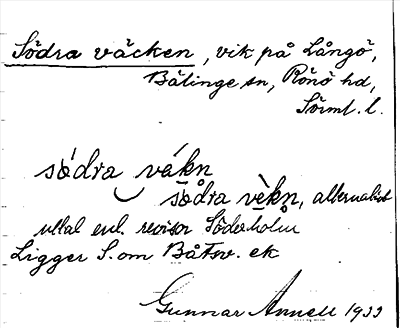 Södra väcken, vik på Långö,
Bälinge sn, Rönö hd,
Sörml. l.
södra vákn
södra vèkn, alternativt
uttal enl. revisor Söderholm
Ligger S. om Båtsv. ek
Gunnar Annell 1933